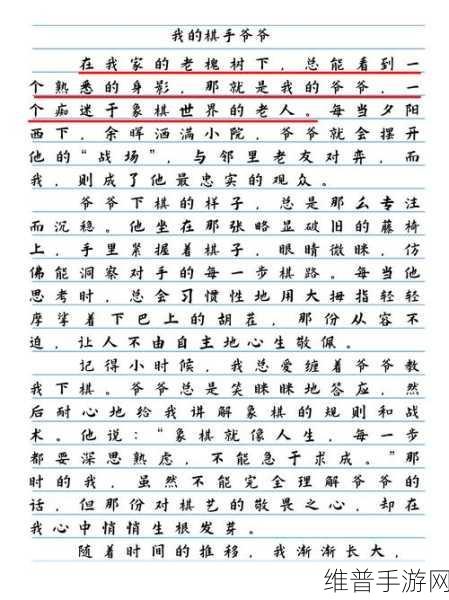 我的棋手爷爷
在我家的老槐树下，总能看到一
个熟悉的身影，那就是我的爷爷，一
个痴迷于象棋世界的老人。每当夕阳
西下，余晖洒满小院，爷爷就会摆开
他的“战场”，与邻里老友对弈，而
我，则成了他最忠实的观众。
爷爷下棋的样子，总是那么专注
而沉稳。他坐在那张略显破旧的藤椅
上，手里紧握着棋子，眼睛微眯，仿
佛能洞察对手的每一步棋路。每当他
思考时，总会习惯性地用大拇指轻轻
摩挲着下巴上的胡茬，那份从容不
迫，让人不由自主地心生敬佩。
记得小时候，我总爱缠着爷爷教
我下棋。爷爷总是笑眯眯地答应，然
后耐心地给我讲解象棋的规则和战
术。他说：“象棋就像人生，每一步
都要深思熟虑，不能急于求成。”那
时的我，虽然不能完全理解爷爷的
话，但那份对棋艺的敬畏之心，却在
我心中悄悄生根发芽。
随着时间的推移，我渐渐长大，
维普手游网